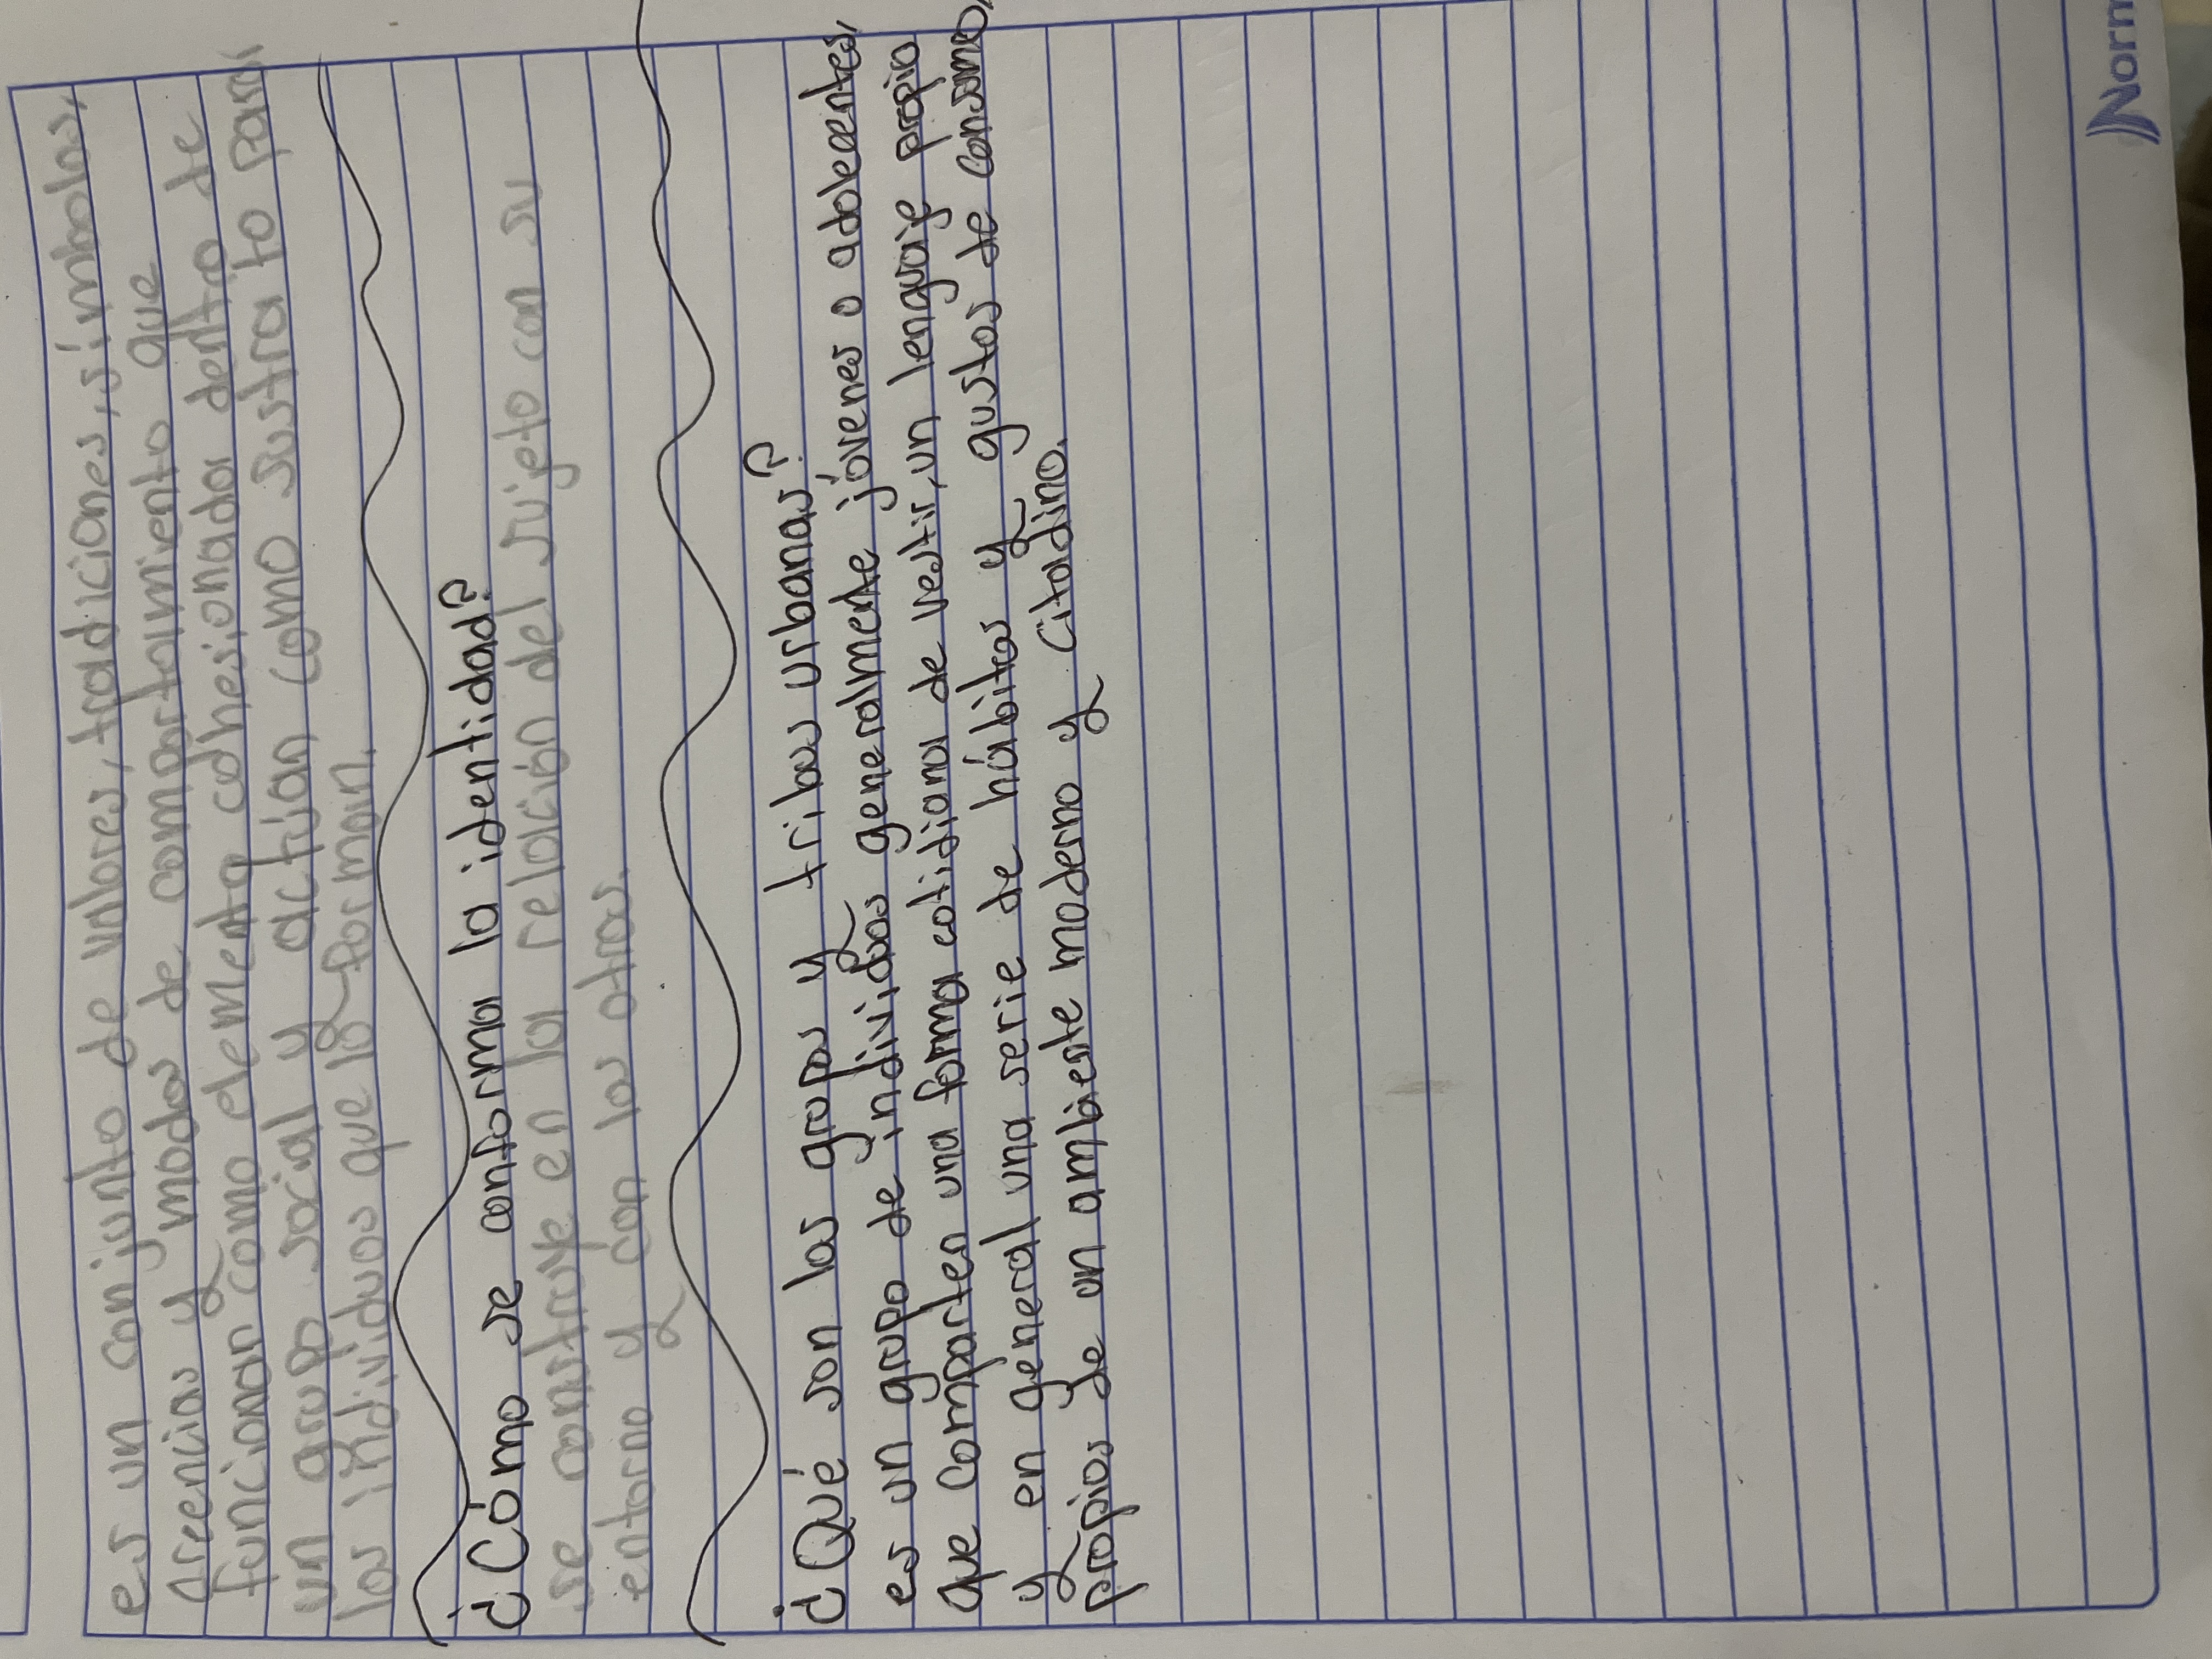 es un conjunto de valores, tradiciones, símbolos,
creencias y modos de comportamiento que
funcionan como elemento cohesionador dentro de
un grupo social y actúan como sustrato para
los individuos que lo forman.
¿Cómo se conforma la identidad?
se construye en la relación del sujeto con su
entorno y con los otros.
¿Qué son los grupos y tribus urbanas?
es un grupo de individuos generalmente jóvenes o adolecentes,
que comparten una forma cotidiana de vestir, un lenguaje propio
y en general una serie de hábitos y gustos de consumo,
propios de un ambiente moderno y citadino.
Norm